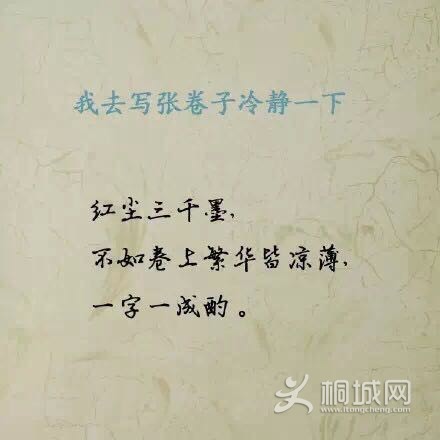 我去写张卷子冷静一下
红尘三千墨，
不如卷上繁华皆凉薄，
一字一成酌。
桐城网
www.itongcheng.com